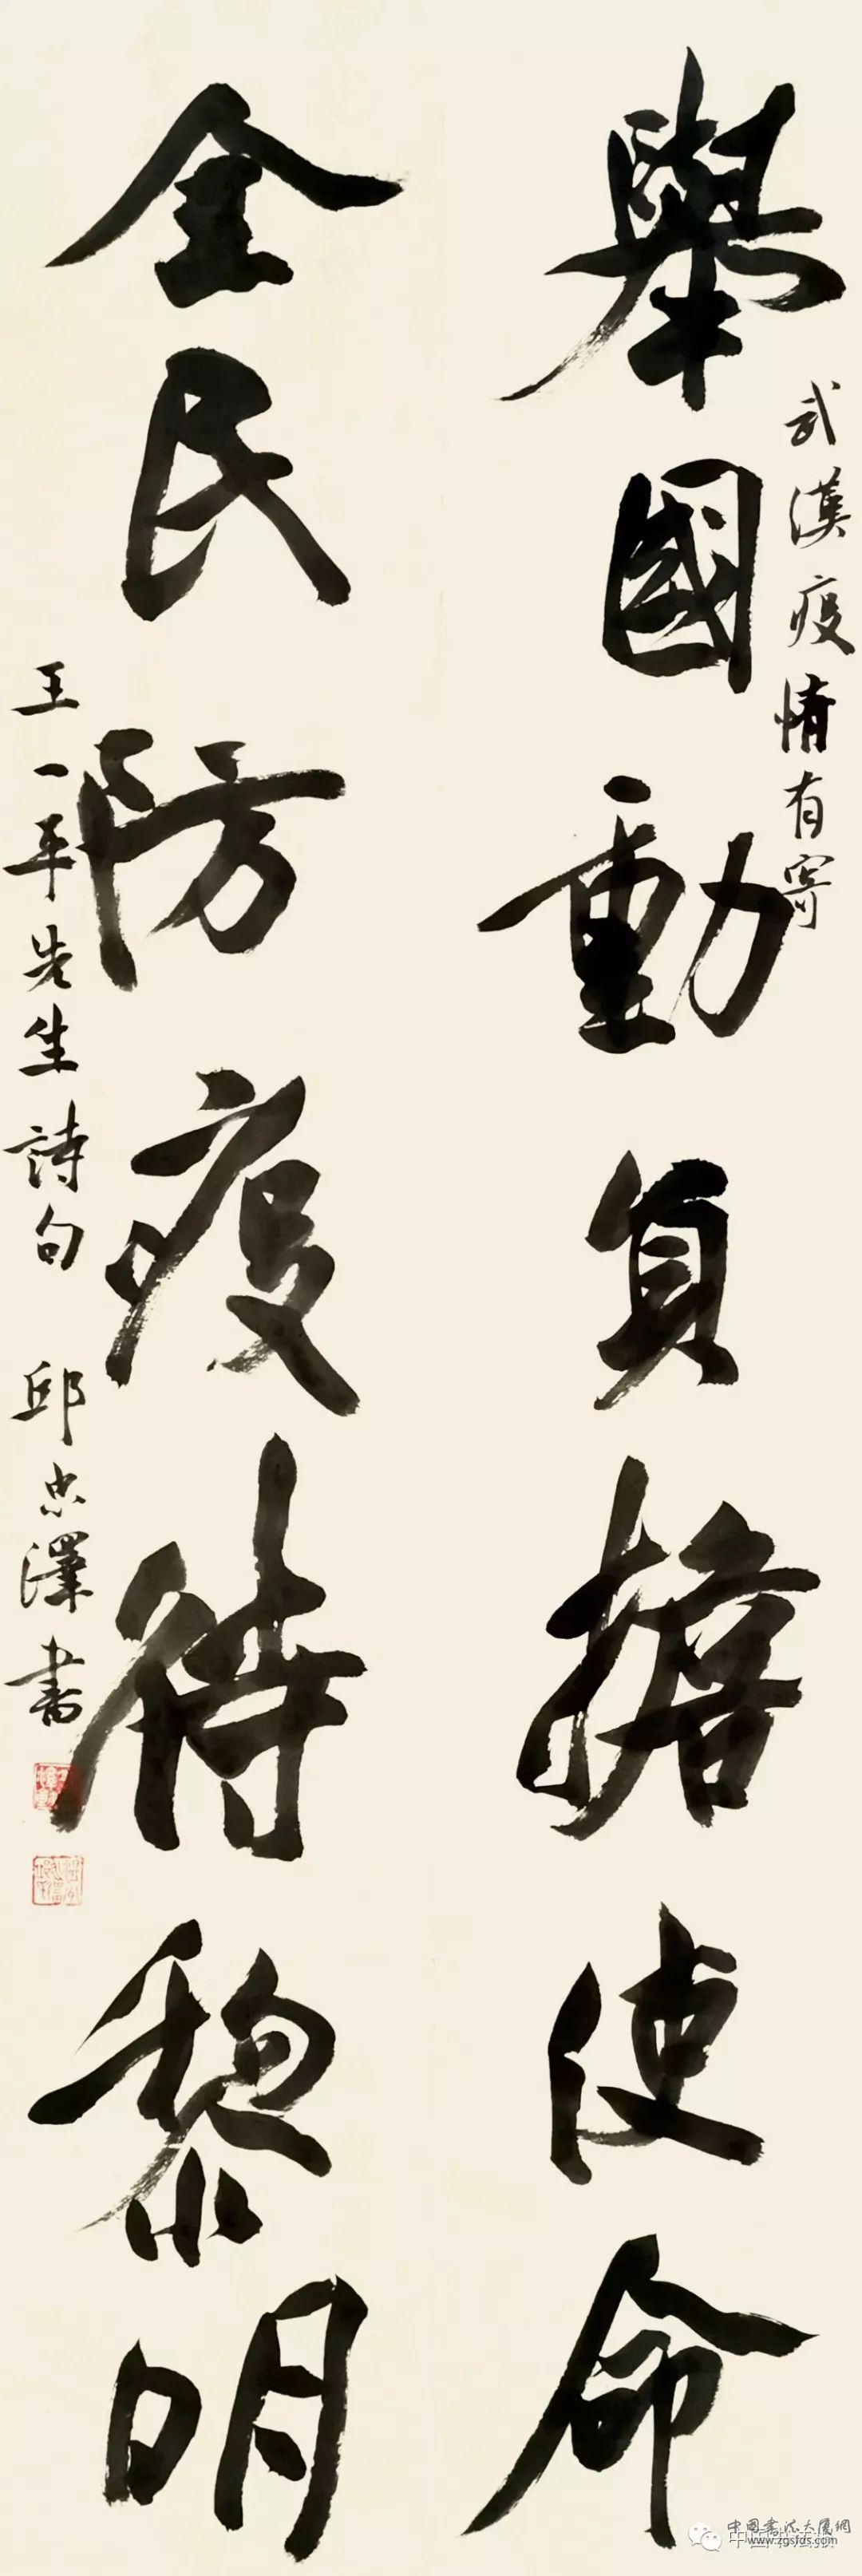 武漢疫情有寄
舉國動員擔使命
全民防疫待黎明
王一平先生詩句 邱忠澤書
中国书法大厦网
www.zgsfds.com
中国书法报